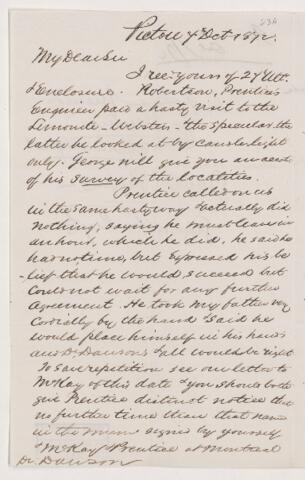 Pictou 7 Oct 1872.
My Dear Sir
I rec. yours of 27 Ult.
& Enclosure. Robertson, Prentice's
Engineer paid a hasty visit to the
Limonite - Webster - & the Specular. the
latter he looked at by candlelight
only. George will give you an acct
of his survey of the localities.
Prentice called on us
in the same hasty way & actually did
nothing, saying he must leave in
an hour, which he did, he said he
had no time, but expressed his be
lief that he would succeed but
could not wait for any further
Agreement. He took my father very
Cordially by the hand & said he
would place himself in his hands
and Dr Dawson's & all would be right
To save repetition see our letter to
McKay of this date & you should both
give Prentice distinct notice that
no further time than that named
in the Mem signed by yourself
& McKay & Prentice at Montreal
Dr. Dawson